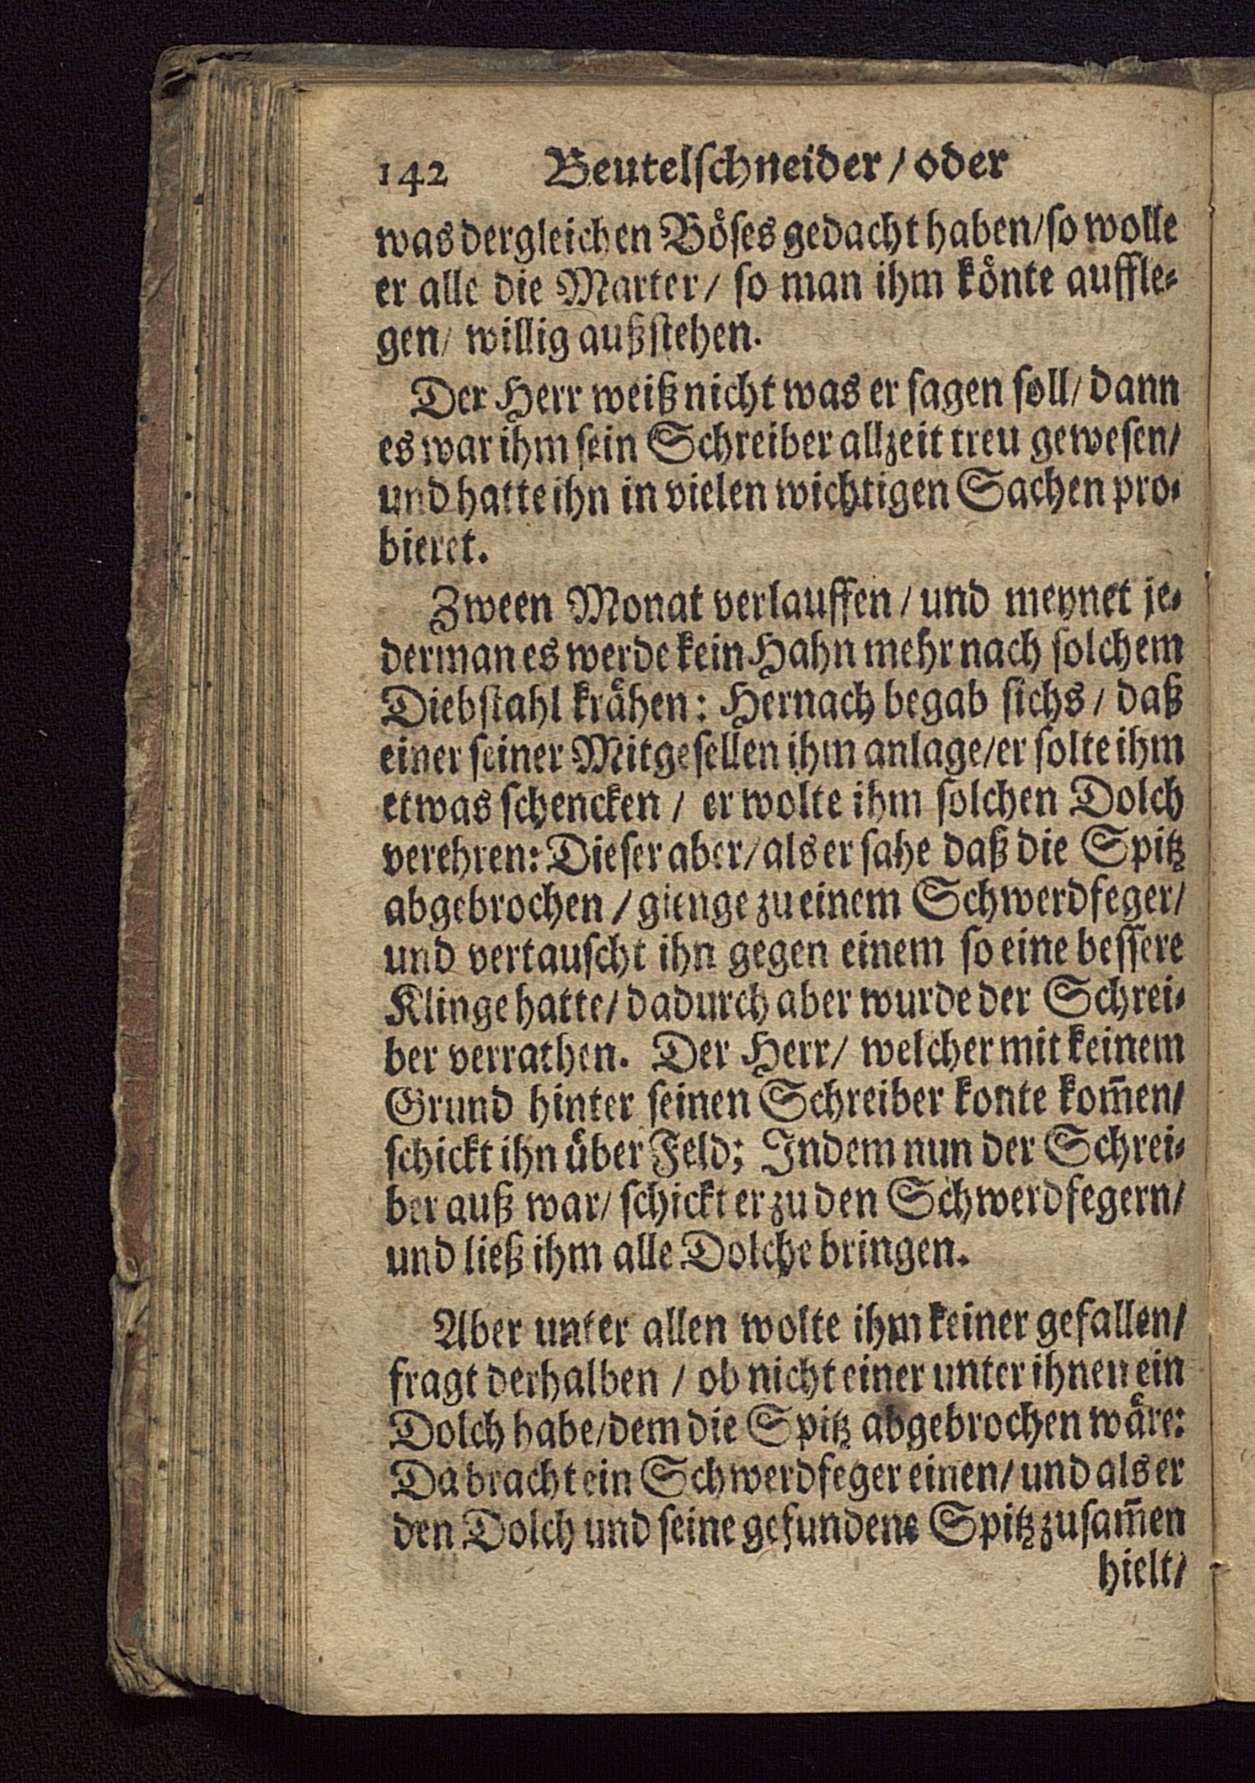 142 Beutelschneider / oder
was dergleichen Böses gedacht haben / so wolle
er alle die Marter / so man ihm könte auffle-
gen / willig außstehen.
Der Herr weiß nicht was er sagen soll / dann
es war ihm sein Schreiber allzeit treu gewesen /
und hatte ihn in vielen wichtigen Sachen pro-
bieret.
Zween Monat verlauffen / und meynet je-
derman es werde kein Hahn mehr nach solchem
Diebstahl krähen: Hernach begab sichs / daß
einer seiner Mitgesellen ihm anlage / er solte ihm
etwas schencken / er wolte ihm solchen Dolch
verehren: Dieser aber / als er sahe daß die Spitz
abgebrochen / gienge zu einem Schwerdfeger /
und vertauscht ihn gegen einem so eine bessere
Klinge hatte / dadurch aber wurde der Schrei-
ber verrathen. Der Herr / welcher mit keinem
Grund hinter seinen Schreiber konte kom̃en /
schickt ihn über Feld; Indem nun der Schrei-
ber auß war / schickt er zu den Schwerdfegern /
und ließ ihm alle Dolche bringen.
Aber unter allen wolte ihm keiner gefallen /
fragt derhalben / ob nicht einer unter ihnen ein
Dolch habe / dem die Spitz abgebrochen wäre:
Da bracht ein Schwerdfeger einen / und als er
den Dolch und seine gefundene Spitz zusam̃en
hielt /